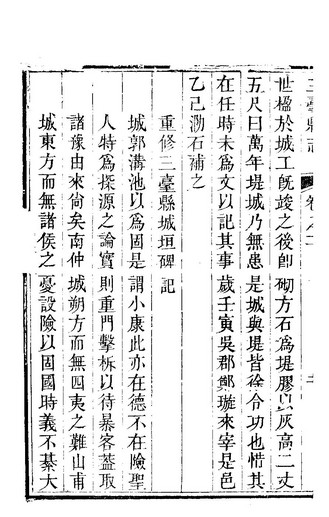 三臺縣志
卷之
世楹於城工旣竣之後卽砌方石爲堤膠以灰高二丈
五尺曰萬年堤城乃無患是城與堤皆徐令功也惜其
在任時未爲文以記其事歲壬寅吳郡鄭璇來宰是邑
乙己泐石補之
重修三臺縣城垣碑記
城郭溝池以爲固是謂小康此亦在德不在險聖
人特爲探源之論實則重門擊柝以待暴客蓋取
諸豫由來尙矣南仲城朔方而無四夷之難山甫
城東方而無諸侯之憂設險以固國時義不綦大